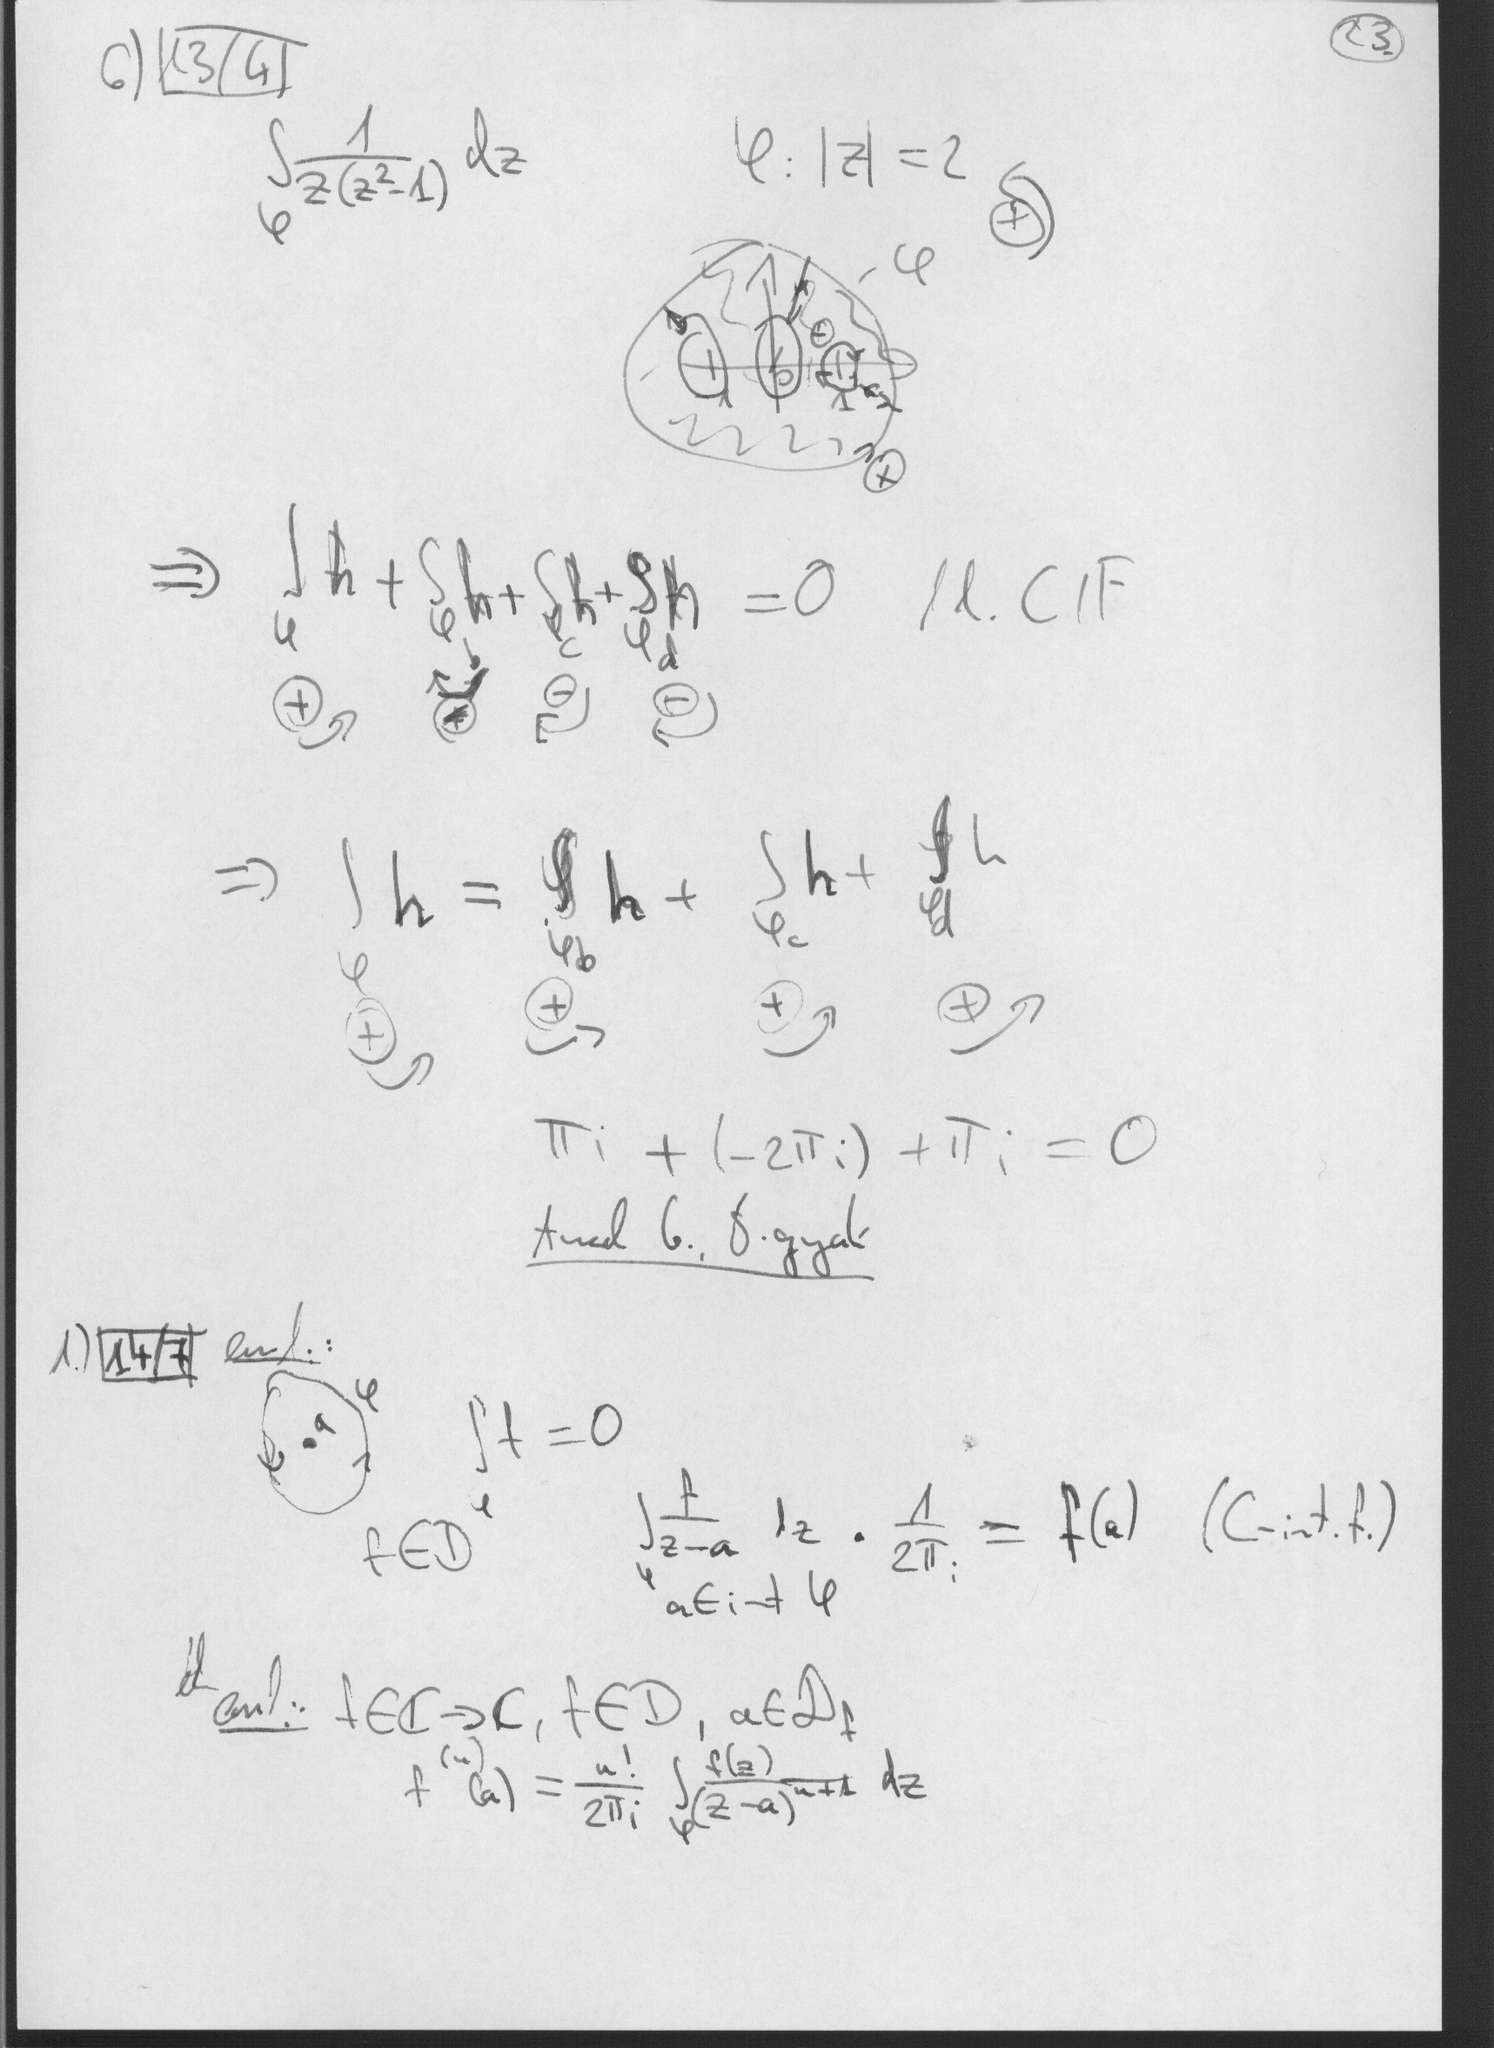 23.
6) 13/4
∫_φ 1/(z(z²-1)) dz φ: |z| = 2 ⊕
φ
⊕
0
1 1 2
⊕
⇒ ∫_φ h + ∫_φb h + ∫_φc h + ∫_φd h = 0
⊕ ⊖ ⊖
⇒ ∫_φ h = ∫_φb h + ∫_φc h + ∫_φd h
⊕ ⊕ ⊕ ⊕
πi + (-2πi) + πi = 0
Anal 6., 8. gyak
1.) 14/7 eml.:
φ
a
∫_φ f = 0
f ∈ D
∫_φ f/(z-a) dz · 1/(2πi) = f(a) (C-int. f.)
a ∈ int φ
eml.: f ∈ C → C, f ∈ D, a ∈ D_f
f^(n)(a) = n!/(2πi) ∫_φ f(z)/(z-a)^(n+1) dz